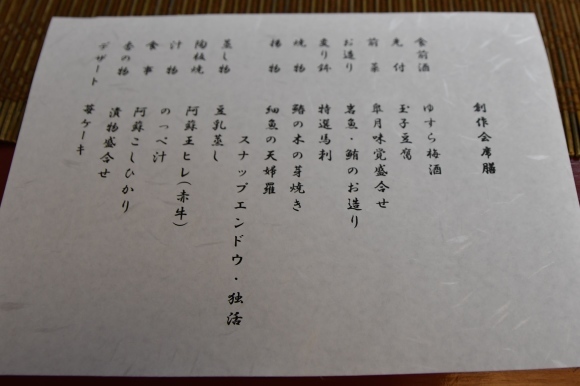 創作会席膳
食前酒 ゆすら梅酒
先付 玉子豆腐
前菜 皐月味覚盛合せ
お造り 岩魚・鮪のお造り
変り鉢 特選馬刺
焼物 鰆の木の芽焼き
揚物 細魚の天婦羅
スナップエンドウ・独活
蒸し物 豆乳蒸し
陶板焼 阿蘇王ヒレ(赤牛)
汁物 のっぺ汁
食事 阿蘇こしひかり
香の物 漬物盛合せ
デザート 苺ケーキ